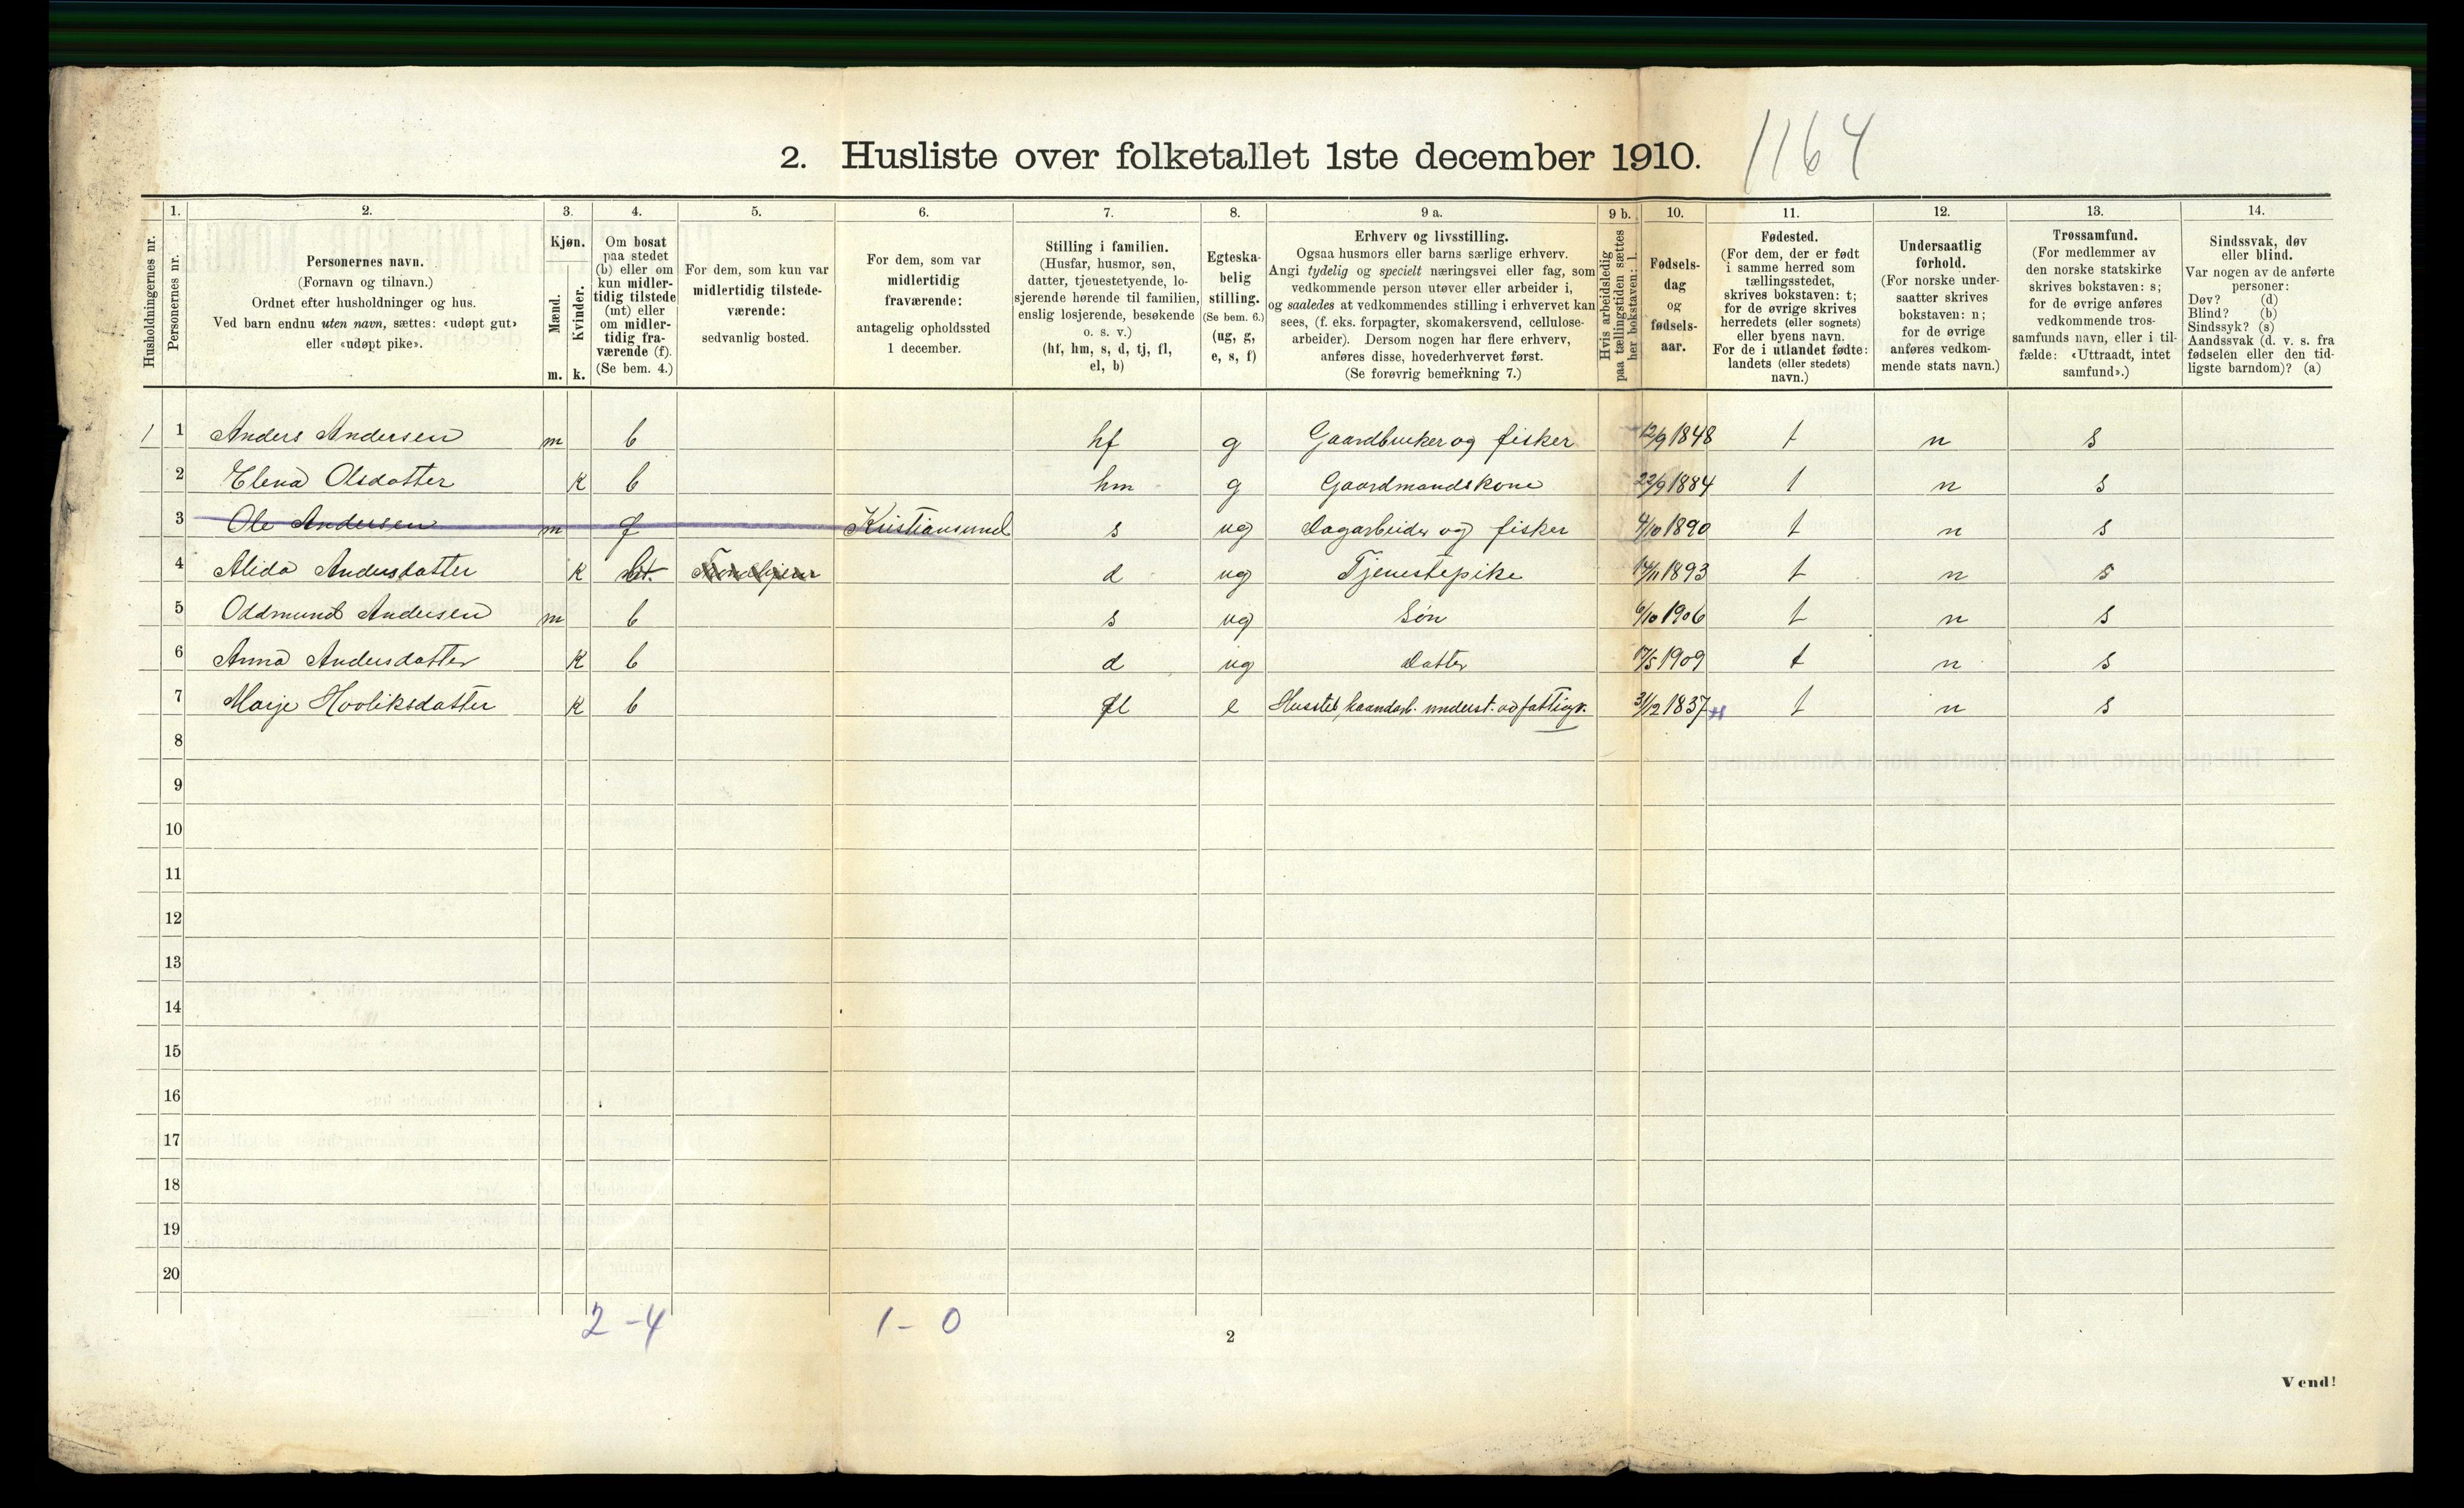 2. Husliste over folketallet 1ste december 1910. 1164
Husholdningernes nr.
1.
Personernes nr.
2.
Personernes navn.
(Fornavn og tilnavn.)
Ordnet efter husholdninger og hus.
Ved barn endnu uten navn, sættes: «udøpt gut»
eller «udøpt pike».
3.
Kjøn.
Mænd.
Kvinder.
m. k.
4.
Om bosat
paa stedet
(b) eller om
kun midler-
tidig tilstede
(mt) eller
om midler-
tidig fra-
værende (f).
(Se bem. 4.)
5.
For dem, som kun var
midlertidig tilstede-
værende:
sedvanlig bosted.
6.
For dem, som var
midlertidig
fraværende:
antagelig opholdssted
1 december.
7.
Stilling i familien.
(Husfar, husmor, søn,
datter, tjenestetyende, lo-
sjerende hørende til familien,
enslig losjerende, besøkende
o. s. v.)
(hf, hm, s, d, tj, fl,
el, b)
8.
Egteska-
belig
stilling.
(Se bem. 6.)
(ug, g,
e, s, f)
9 a.
Erhverv og livsstilling.
Ogsaa husmors eller barns særlige erhverv.
Angi tydelig og specielt næringsvei eller fag, som
vedkommende person utøver eller arbeider i,
og saaledes at vedkommendes stilling i erhvervet kan
sees, (f. eks. forpagter, skomakersvend, cellulose-
arbeider). Dersom nogen har flere erhverv,
anføres disse, hovederhvervet først.
(Se forøvrig bemerkning 7.)
9 b.
Hvis arbeidsledig
paa tællingstiden sættes
her bokstaven: l.
10.
Fødsels-
dag
og
fødsels-
aar.
11.
Fødested.
(For dem, der er født
i samme herred som
tællingsstedet,
skrives bokstaven: t;
for de øvrige skrives
herredets (eller sognets)
eller byens navn.
For de i utlandet fødte:
landets (eller stedets)
navn.)
12.
Undersaatlig
forhold.
(For norske under-
saatter skrives
bokstaven: n;
for de øvrige
anføres vedkom-
mende stats navn.)
13.
Trossamfund.
(For medlemmer av
den norske statskirke
skrives bokstaven: s;
for de øvrige anføres
vedkommende tros-
samfunds navn, eller i til-
fælde: «Uttraadt, intet
samfund».)
14.
Sindssvak, døv
eller blind.
Var nogen av de anførte
personer:
Døv? (d)
Blind? (b)
Sindssyk? (s)
Aandssvak (d. v. s. fra
fødselen eller den tid-
ligste barndom)? (a)
1 1 Anders Andersen m b hf g Gaardbruker og fisker 12/9 1848 t n s
2 Elena Olsdatter k b hm g Gaardmandskone 22/9 1884 t n s
3 Ole Andersen m f Kristiansund s ug Dagarbeider og fisker 4/10 1890 t n s
4 Alida Andersdatter k Trondhjem d ug Tjenestepike 1893 t n s
5 Oddmund Andersen m b s ug Søn 6/10 1906 t n s
6 Anna Andersdatter k b d ug Datter 17/5 1909 t n s
7 Marje k b fl e underst. af fattigv. 31/12 1837 t n s
8
9
10
11
12
13
14
15
16
17
18
19
20
2 - 4 1 - 0
2
Vend!